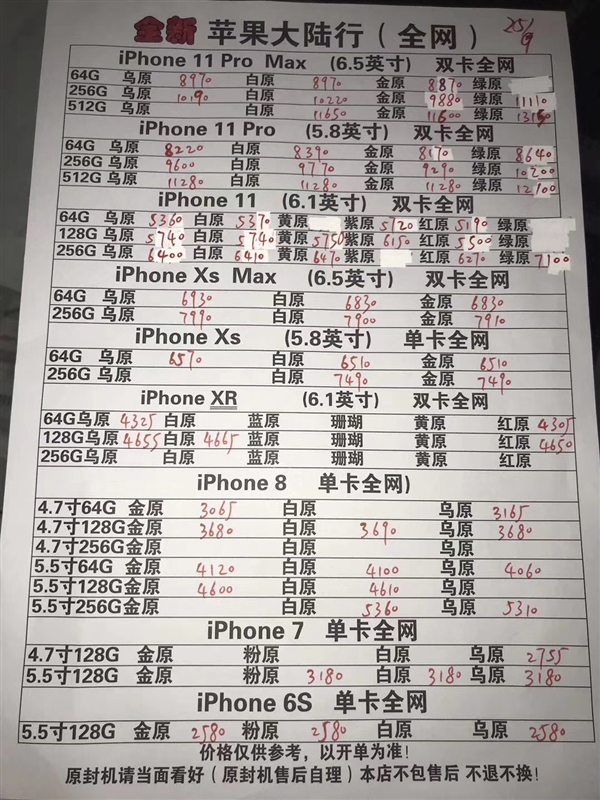 全新 苹果大陆行（全网） 25/9
iPhone 11 Pro Max (6.5英寸) 双卡全网
64G 乌原 8970 白原 8970 金原 8870 绿原
256G 乌原 10190 白原 10220 金原 9880 绿原 11110
512G 白原 11650 金原 11600 绿原 13150
iPhone 11 Pro (5.8英寸) 双卡全网
64G 乌原 8220 白原 8390 金原 8170 绿原 8640
256G 乌原 9600 白原 9770 金原 9290 绿原 10200
512G 乌原 11280 白原 11280 金原 11280 绿原 12100
iPhone 11 (6.1英寸) 双卡全网
64G 乌原 5360 白原 5370 黄原 紫原 5720 红原 5190 绿原
128G 乌原 5740 白原 5740 黄原 5750 紫原 6150 红原 5500 绿原
256G 乌原 6400 白原 6410 黄原 6470 紫原 红原 6270 绿原 7100
iPhone Xs Max (6.5英寸) 双卡全网
64G 乌原 6930 白原 6830 金原 6830
256G 乌原 7990 白原 7900 金原 7910
iPhone Xs (5.8英寸) 单卡全网
64G 乌原 6570 白原 6510 金原 6510
256G 乌原 白原 7490 金原 7490
iPhone XR (6.1英寸) 双卡全网
64G乌原 4325 白原 蓝原 珊瑚 黄原 红原 4305
128G乌原 4655 白原 4665 蓝原 珊瑚 黄原 红原 4650
256G乌原 白原 蓝原 珊瑚 黄原 红原
iPhone 8 单卡全网)
4.7寸64G 金原 3065 白原 乌原 3165
4.7寸128G 金原 3680 白原 3690 乌原 3680
4.7寸256G 金原 白原 乌原
5.5寸64G 金原 4120 白原 4100 乌原 4060
5.5寸128G 金原 4600 白原 4610 乌原
5.5寸256G 金原 白原 5360 乌原 5310
iPhone 7 单卡全网
4.7寸128G 金原 粉原 白原 乌原 2755
5.5寸128G 金原 粉原 3180 白原 3180 乌原 3180
iPhone 6S 单卡全网
5.5寸128G 金原 2580 粉原 2580 白原 乌原 2580
价格仅供参考，以开单为准!
原封机请当面看好（原封机售后自理）本店不包售后 不退不换!